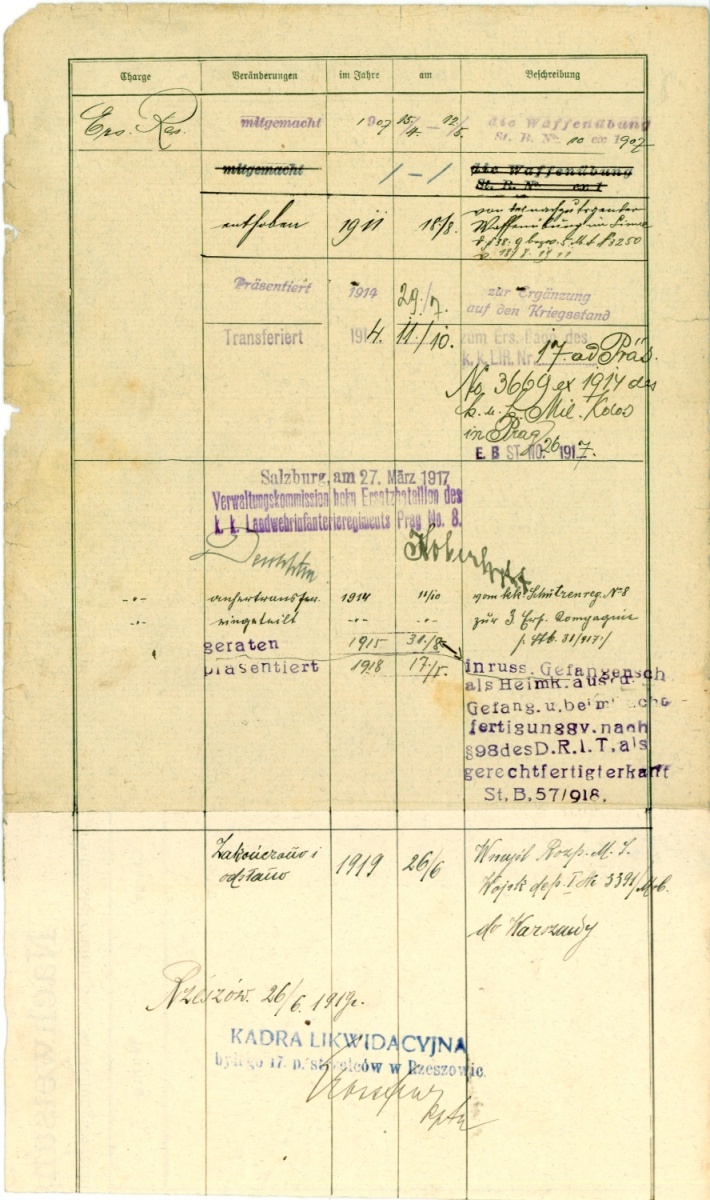 Charge Veränderungen im Jahre am Beschreibung
Ers. Res. mitgemacht 1907 15/4. – 12/5. die Waffenübung
St. R. No. 10 ex 1907
mitgemacht / – / die Waffenübung
St. R. No. ex 1
enthoben 1911 18/8. von der nachzutragenden
Waffenübung im Sinne
18/8 1911
Präsentiert 1914 29./7. zur Ergänzung
auf den Kriegsstand
Transferiert 1914. 11./10. zum Ers. des
k. k. LIR. Nr. 17. ad Präs.
No. 3669 ex 1914 des
k. u. k. Mil. Kdos
in Prag
E. B ST. NO. 26 1917.
Salzburg, am 27. März 1917
Verwaltungskommission beim Ersatzbataillon des
k. k. Landwehrinfanterieregiments Prag No. 8.
-"- anhertransfer. 1914 11/10 vom kk. Schützenreg. No 8
-"- eingeteilt -"- -"- zur 3. Ers. Kompagnie
geraten 1915 31./8.
präsentiert 1918 17./5. in russ. Gefangensch
als Heimk. aus d.
Gefang. u. beim
fertigung gv. nach
§98 des D. R. I. T. als
gerechtfertigt erkannt
St. B. 57/918.
Zakończono i 1919 26/6 Rozp. M. S.
odsłano Wojsk dep. I № 3391/Mob.
do Warszawy
Rzeszów. 26/6. 1919 r.
KADRA LIKWIDACYJNA
byłego 17. p. strzelców w Rzeszowie.